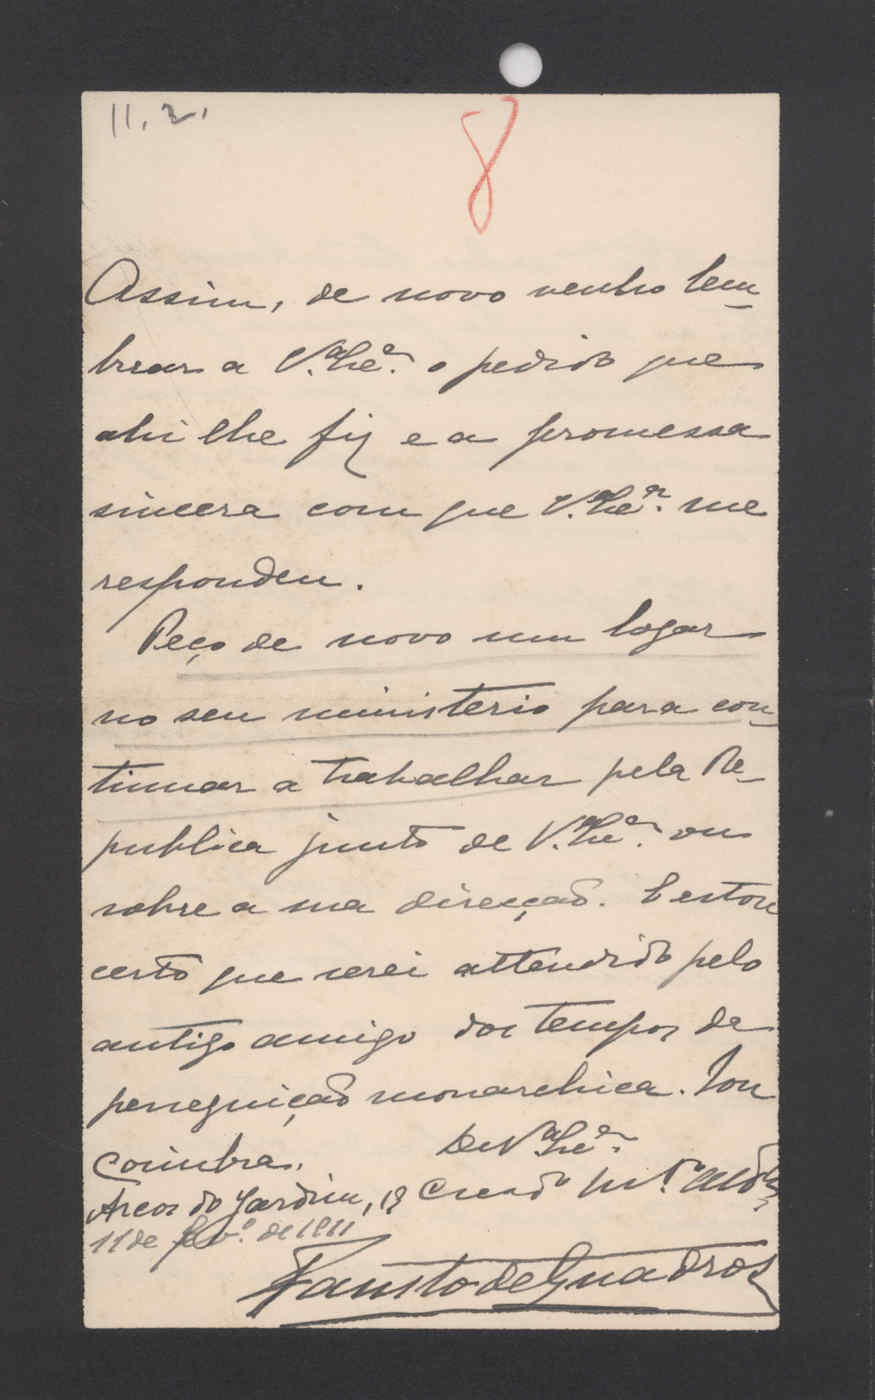 11. 2.
8
Assim, de novo venho lem-
brar a V.ª Ex.ª o pedido que
ahi lhe fiz e a promessa
sincera com que V.ª Ex.ª me
respondeu.
Peço de novo um logar
no seu ministerio para con-
tinuar a trabalhar pela Re-
publica junto de V.ª Ex.ª ou
sobre a sua direcção. E estou
certo que serei attendido pelo
antigo amigo dos tempos da
perseguição monarchica. Sou
De V.ª Ex.ª
Coimbra,
Arcos do Jardim, 19 Creado
11 de fev.º de 1911
Fausto de Quadros